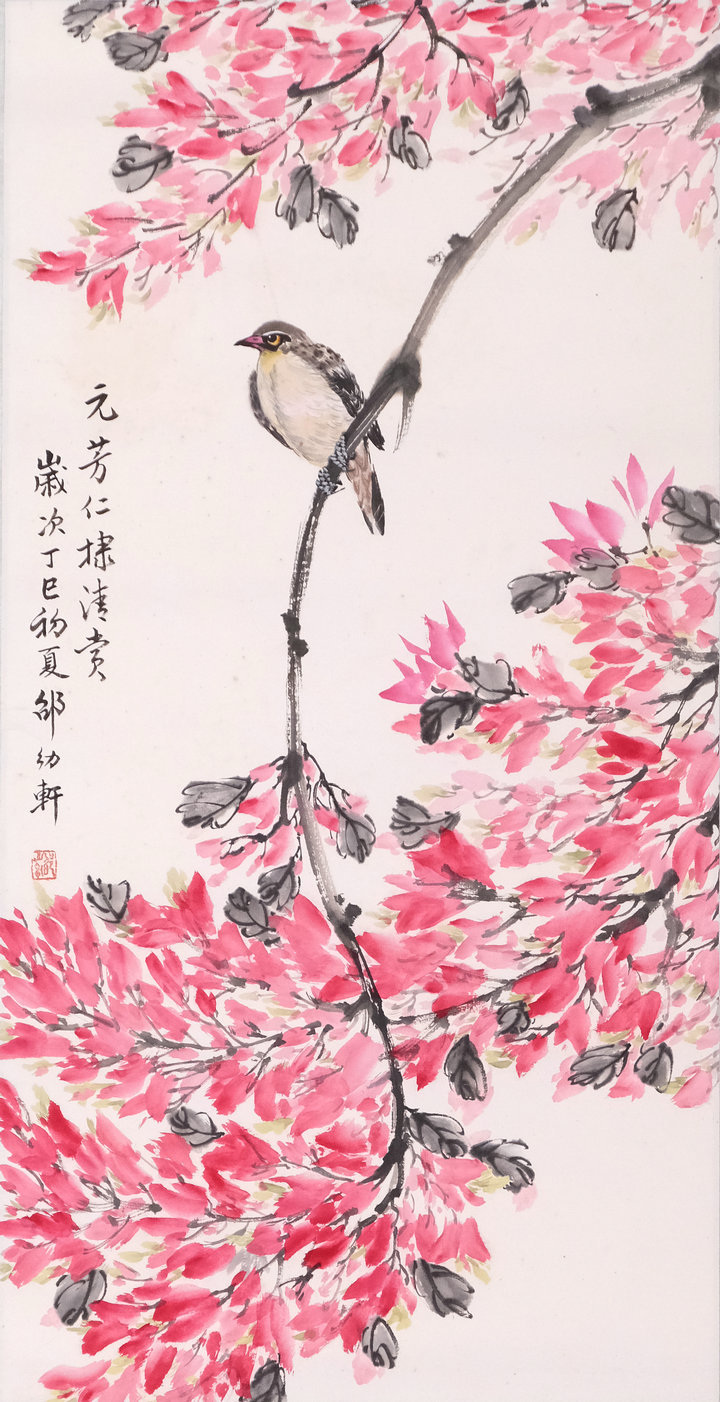 元芳仁棣清赏
嵗次丁巳初夏邵幼軒